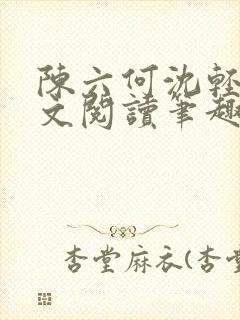 陳六何沈輕
文閱讀筆趣
杏堂麻衣(杏堂